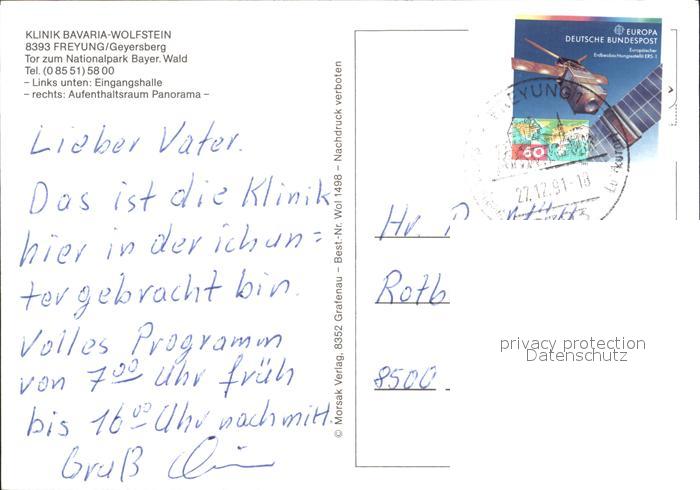 KLINIK BAVARIA-WOLFSTEIN
8393 FREYUNG/Geyersberg
Tor zum Nationalpark Bayer. Wald
Tel. (0 85 51) 58 00
– Links unten: Eingangshalle
– rechts: Aufenthaltsraum Panorama –
Lieber Vater.
Das ist die Klinik
hier in der ich un=
tergebracht bin.
Volles Programm
von 7 00 Uhr früh
bis 16 00 Uhr nachmitt.
Gruß
© Morsak Verlag, 8352 Grafenau – Best.-Nr. Wol 1498 – Nachdruck verboten
EUROPA
DEUTSCHE BUNDESPOST
Europäischer
Erdbeobachtungssatellit ERS-1
60
FREYUNG 1
27.12.91-18
Hr.
Rotb
8500
privacy protection
Datenschutz